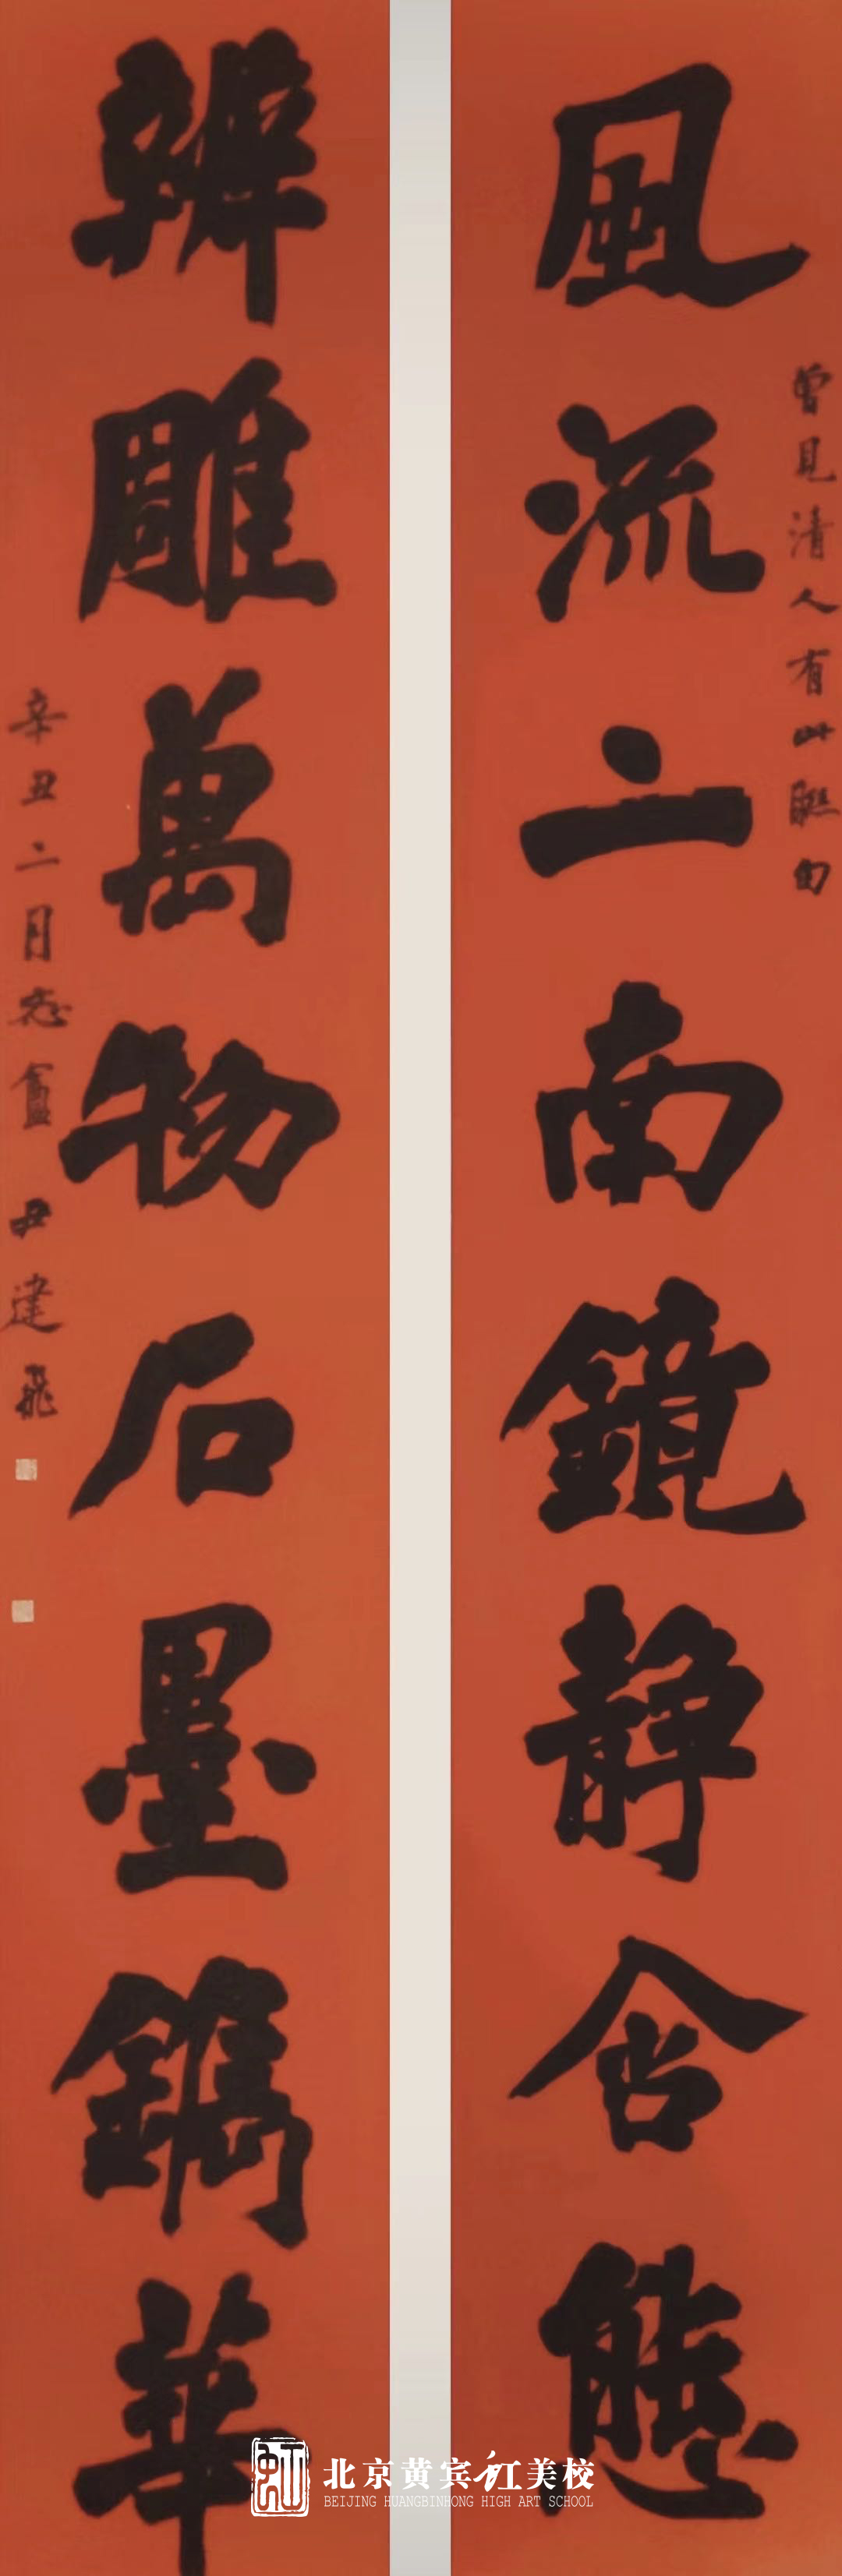 曾見清人有此聯句
風流二南鏡静含態
辨雕萬物石墨鐫華
辛丑二月忘盦尹建飛
北京黄宾虹美校
BEIJING HUANGBINHONG HIGH ART SCHOOL